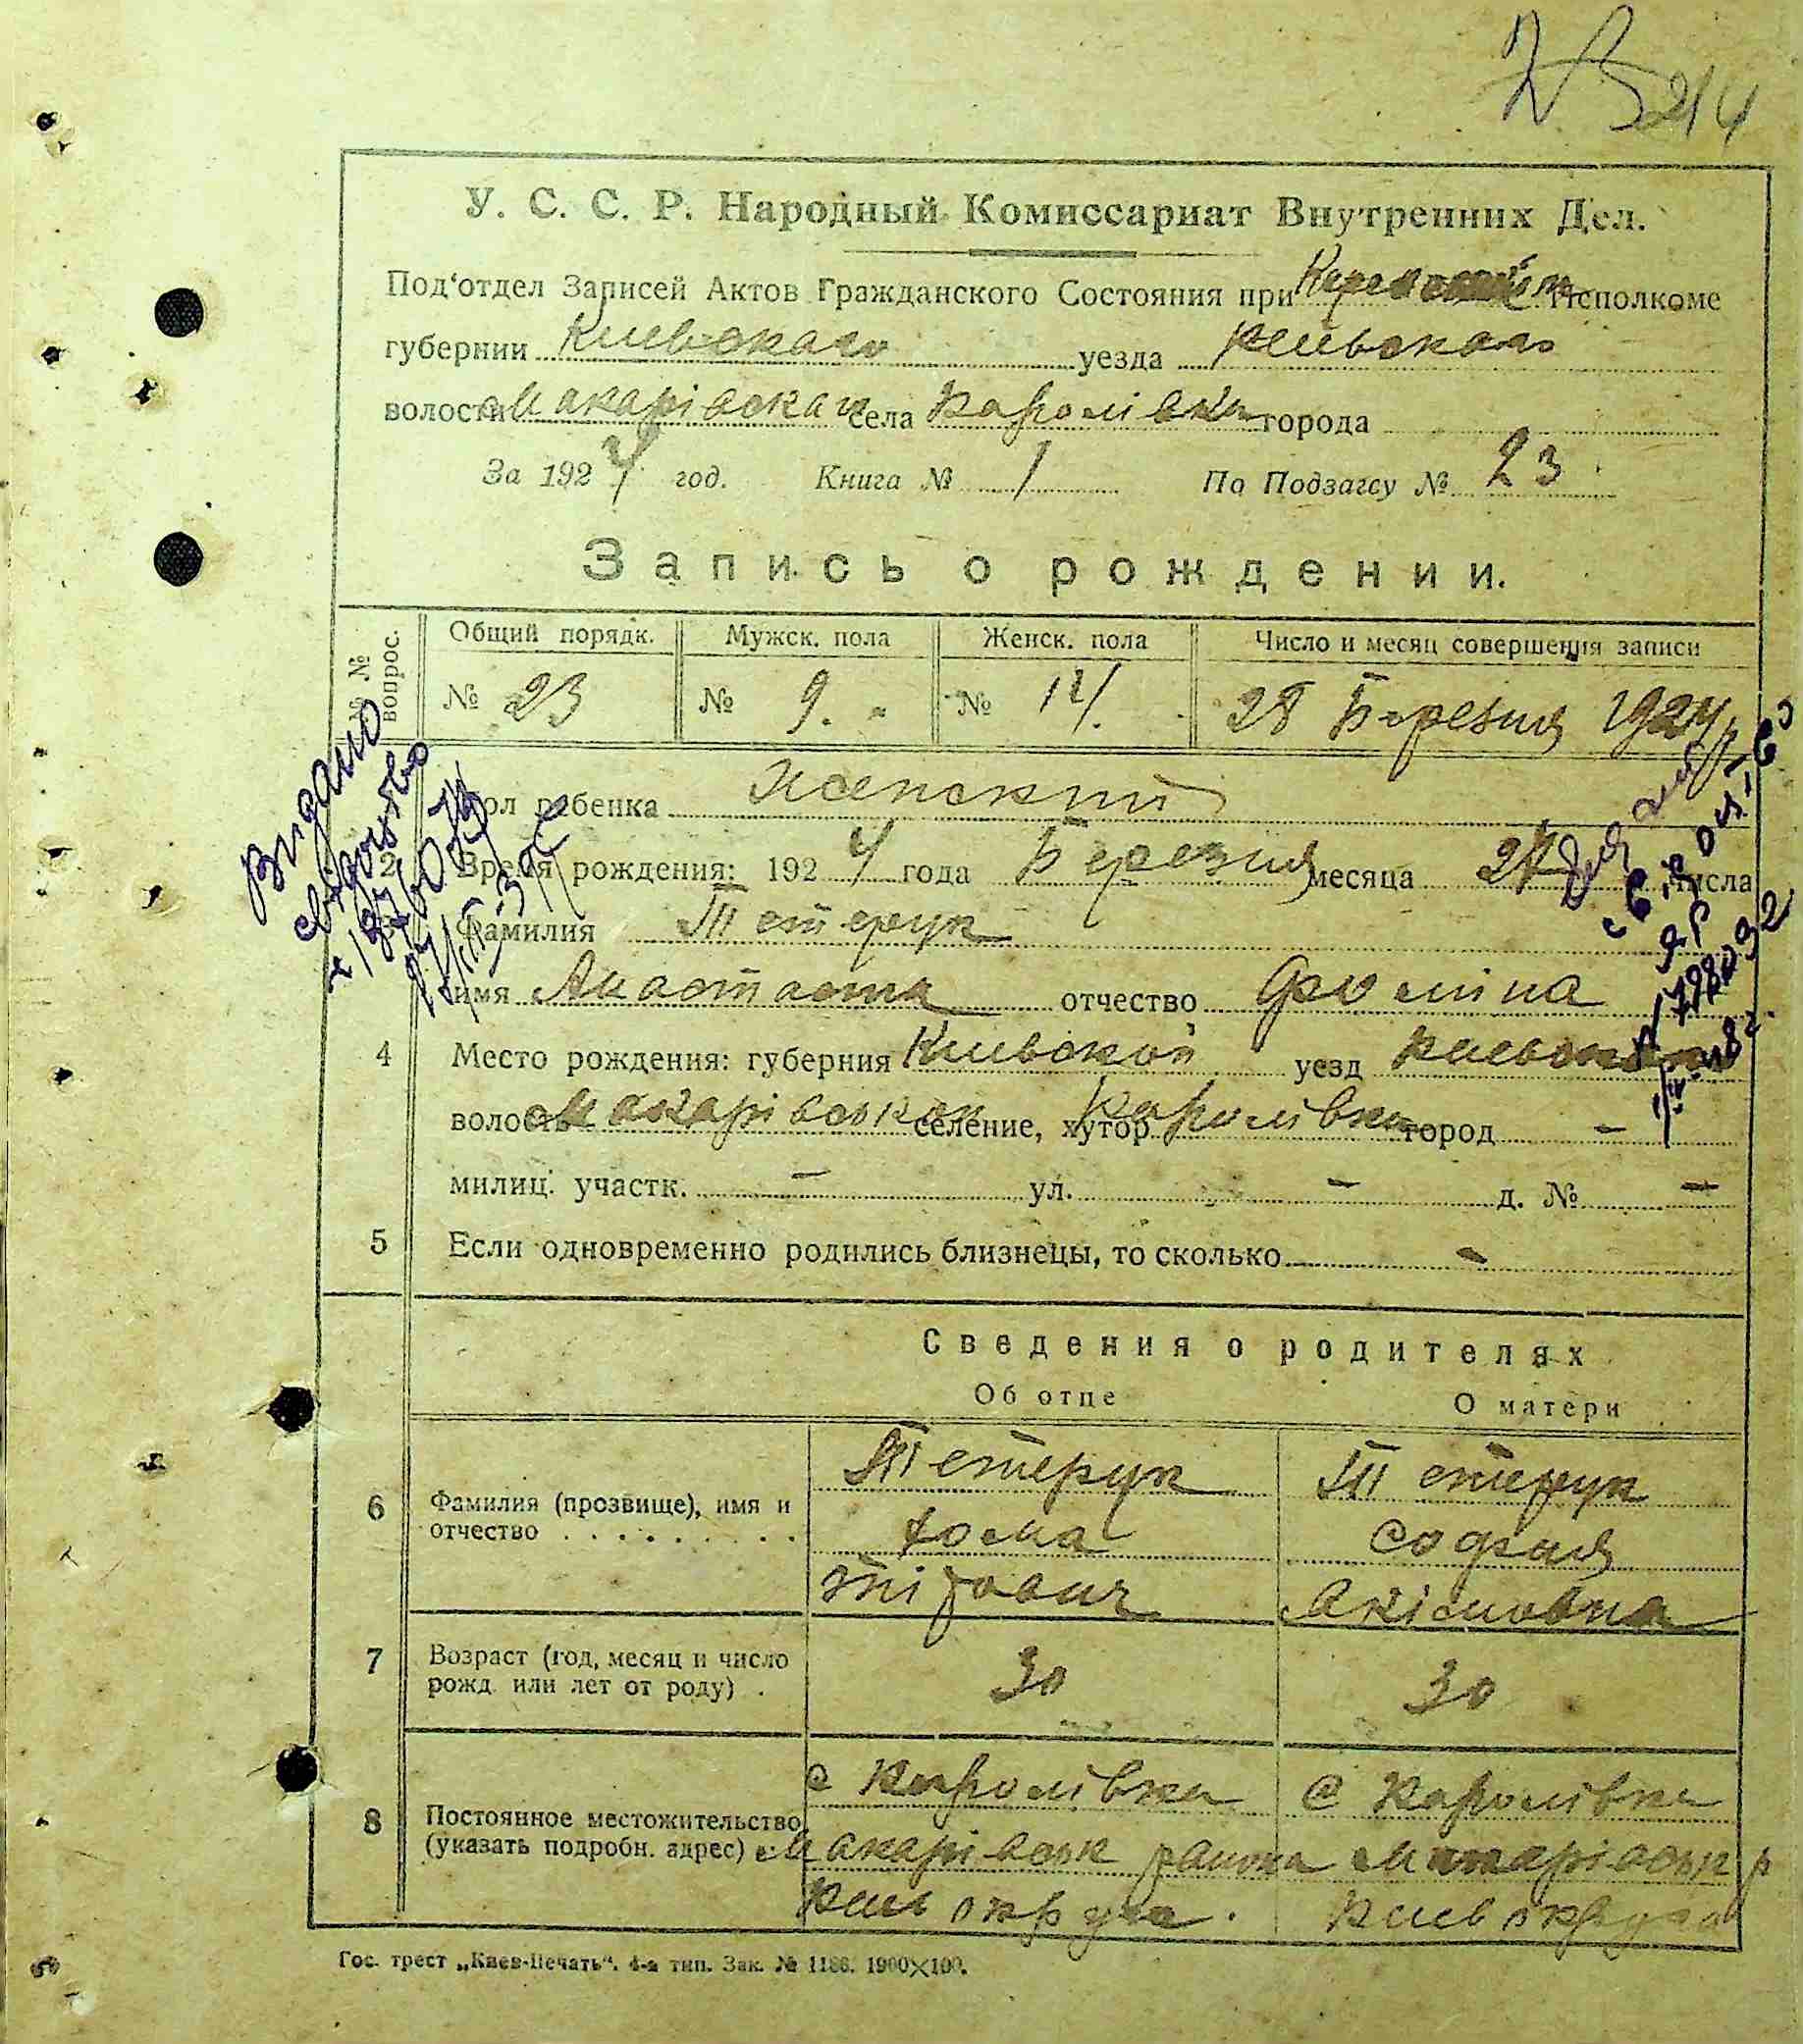 214
У. С. С. Р. Народный Комиссариат Внутренних Дел.
Под'отдел Записей Актов Гражданского Состояния при Исполкоме
губернии Киевскаго уезда Киевскаго
волости Макарівскаи села Каролівки города
За 1924 год. Книга № 1 По Подзагсу № 23
Запись о рождении.
№№ вопрос. Общий порядк. Мужск. пола Женск. пола Число и месяц совершения записи
№ 23 № 9. № 14. 28 Березня 1924 р
Пол ребенка Женский
2 Время рождения: 1924 года Березня месяца числа
Фамилия Тетерук
имя Анастасия отчество Фоміна
4 Место рождения: губерния Киевской уезд Киевского
волость Макарівской селение, хутор Каролівка город -
милиц. участк. - ул. - д. № -
5 Если одновременно родились близнецы, то сколько -
Сведения о родителях
Об отце О матери
6 Фамилия (прозвище), имя и отчество . . . . . . . . .
Тетерук Тетерук
Хома София
Тітович Акімовна
7 Возраст (год, месяц и число рожд. или лет от роду) .
30 30
8 Постоянное местожительство (указать подробн. адрес)
с Каролівка с Каролівка
Макарівськ району Макарівськ р
Киев округа. Киев округа
Гос. трест „Киев-Печать“. 4-а тип. Зак. № 1186. 1900×100.
Видано
свідоцтво